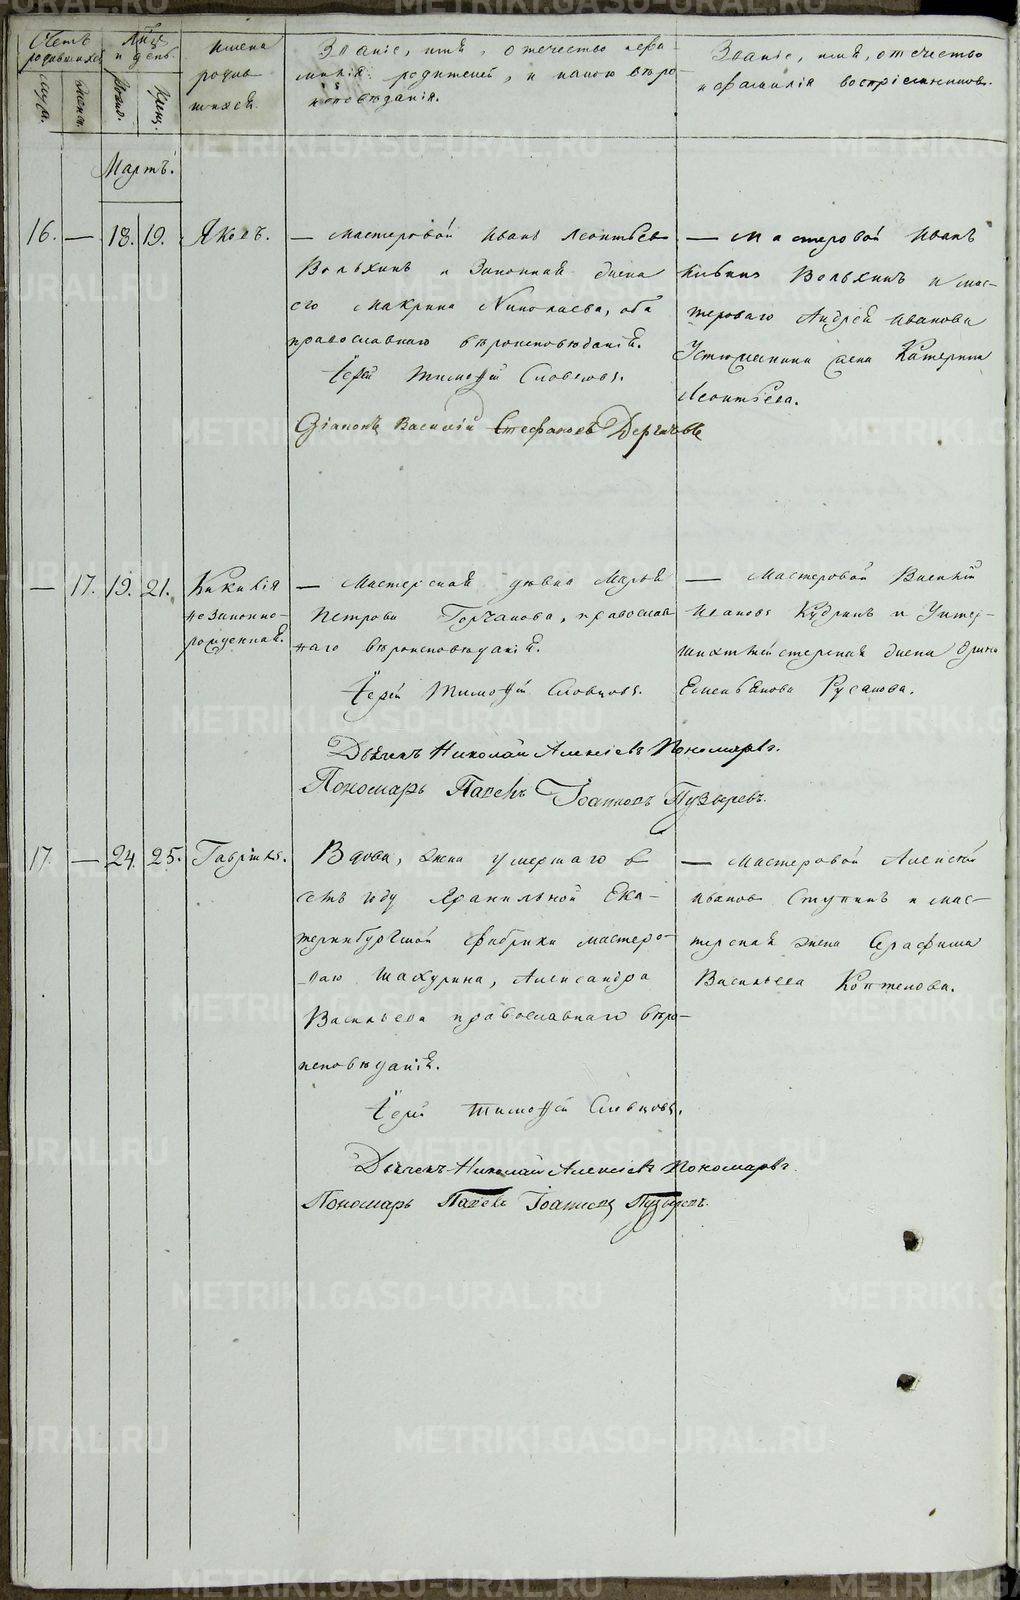 Счетъ родившихся
Мужа.
женск.
Мѣс. и день.
рожд.
Крещ.
Имена
родив
шихся.
Званіе, имя, отечество и фа-
милія родителей, и какого вѣро
исповѣданія.
Званіе, имя, отечество
и фамилія воспріемниковъ.
Мартъ.
16. — 18. 19. Яковъ.
— Мастеровой Иванъ Леонтьев
Вольхинъ и Законная жена
его Макрина Николаева, оба
православнаго вѣроисповѣданія.
Іерей Тимоѳей Словцовъ.
Діаконъ Василій Стефановъ Дергачевъ
— Мастеровой Иванъ
Вольхинъ и мас-
тероваго Андрея Иванова
Устюжанина жена Катерина
Леонтьева.
— 17. 19. 21. Кикилія
незаконно-
рожденная.
— Мастерская дѣвка Марья
Петрова Горчакова, православ
наго вѣроисповѣданія.
Іерей Тимоѳей Словцовъ.
Дьячекъ Николай Алексіевъ Пономаревъ.
Пономарь Павелъ Іоанновъ Пузыревъ.
— Мастеровой Василій
Ивановъ Кудринъ и Унтер-
шихтмейстерская жена Орина
Емельянова Русанова.
17. — 24. 25. Гавріилъ.
Вдова, жена умершаго в
семъ году Гранильной Ека-
теринбургской фабрики мастеро-
ваго Шахурина, Александра
Васильева православнаго вѣро-
исповѣданія.
Іерей Тимоѳей Словцовъ.
Дьячекъ Николай Алексіевъ Пономаревъ.
Пономарь Павелъ Іоанновъ Пузыревъ.
— Мастеровой Алексѣй
Ивановъ Ступинъ и мас-
терская жена Серафима
Васильева Коптелова.
METRIKI.GASO-URAL.RU